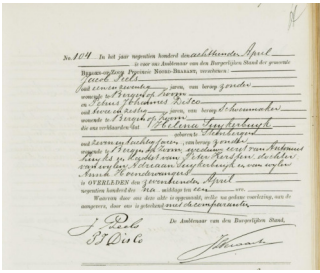 No. 104 In het jaar negentien honderd den achttienden April
is voor ons Ambtenaar van den Burgerlijken Stand der gemeente
BERGEN-OP-ZOOM PROVINCIE NOORD-BRABANT, verschenen:
Jacob Pels
oud een en zeventig jaren, van beroep zonder
wonende te Bergen op Zoom
en Petrus Johannes Disco
oud twee en zestig jaren, van beroep Schoenmaker
wonende te Bergen op Zoom
die ons verklaarden dat Helena Suijkerbuijk
geboren te Steenbergen
oud zeven en tachtig jaren, van beroep zonder
wonende te Bergen op Zoom, weduwe eerst van Antonius
en laatst van Peter Kerstens, dochter
van wijlen Adriaan Suijkerbuijk en van wijlen
Anna
is OVERLEDEN den zeventienden April
negentien honderd des na middags te een ure.
Waarvan door ons deze akte is opgemaakt, welke, na gedane voorlezing, aan de
aangevers, door ons is geteekend met de comparanten
De Ambtenaar van den Burgerlijken Stand,
J Pels
P J Disco